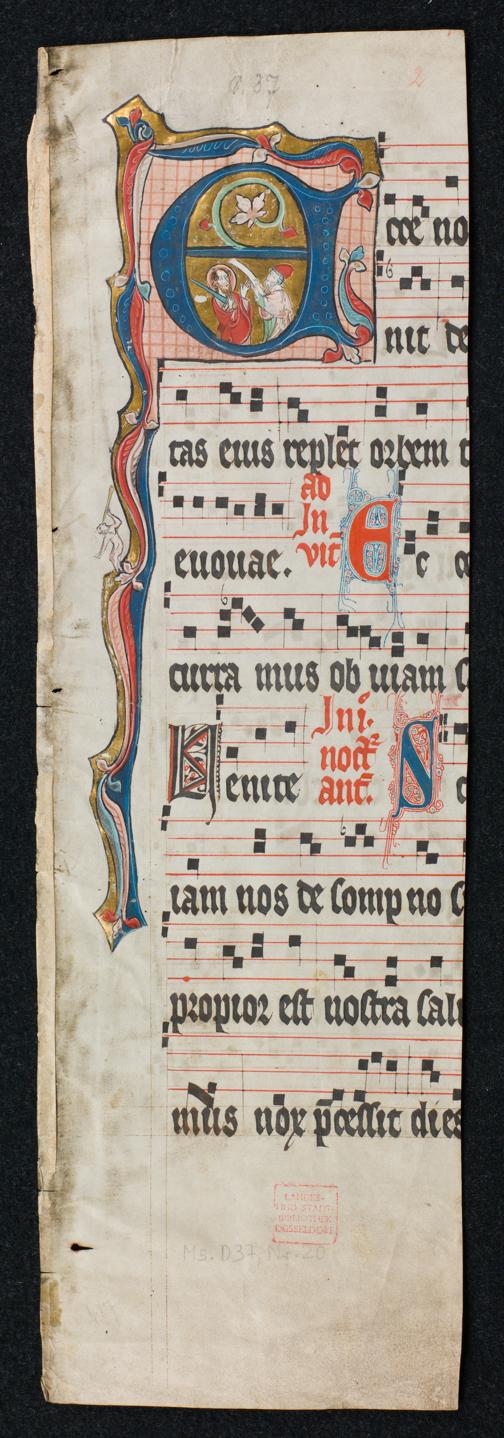 D 37
2
Ecce no
nit de
tas eius replet orbem t
euouae. ad In vit E c
curra mus ob uiam
Venite In i. noct ant. S
iam nos de sompno
propior est nostra salu
mus nox p̄cessit dies
LANDES-
UND STADT-
BIBLIOTHEK
DÜSSELDORF
Ms. D37, Nr. 20